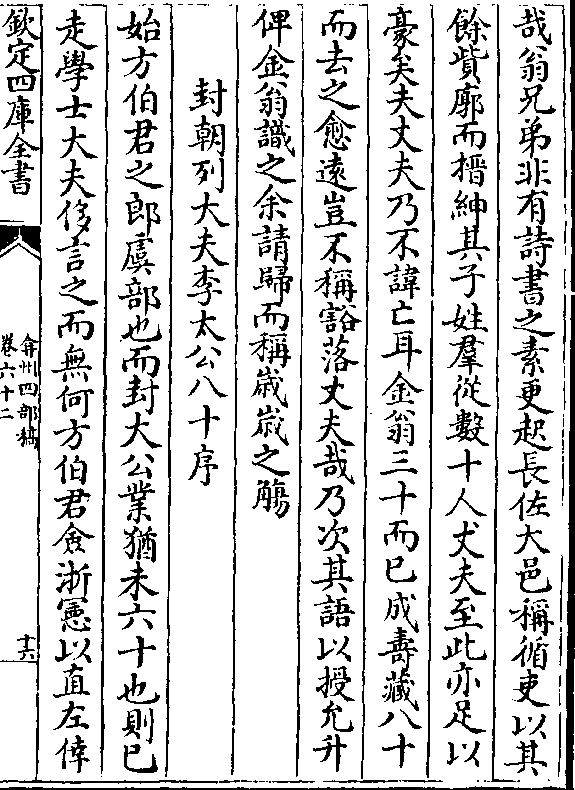 哉翁兄弟非有詩書之素更起長佐大邑稱循吏以其
餘貲廓而搢紳其子姓羣從數十人丈夫至此亦足以
豪矣夫丈夫乃不諱亡耳金翁三十而已成壽藏八十
而去之愈遠豈不稱豁落丈夫哉乃次其語以授允升
俾金翁識之余請歸而稱嵗嵗之觴
封朝列大夫李太公八十序
始方伯君之郎虞部也而封大公業猶未六十也則已
走學士大夫侈言之而無何方伯君僉浙憲以直左倅
欽定四庫全書
弇州四部稿
卷六十二
十六